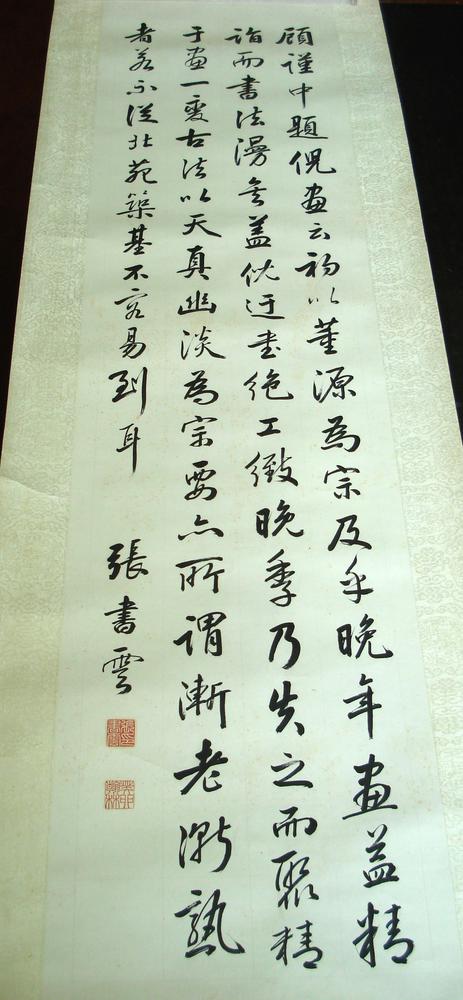 顧謹中題倪畫云初以董源為宗及乎晚年畫益精
詣而書法漫矣蓋倪迂書絕工緻晚季乃失之而聚精
于畫一變古法以天真幽淡為宗要亦所謂漸老漸熟
者若不從北苑築基不容易到耳
張書雲